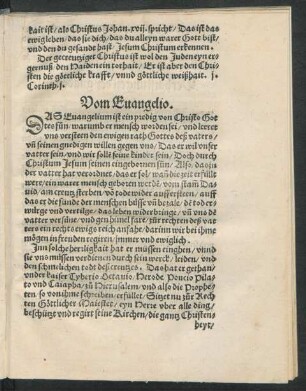 kait ist/ als Christus Johan. xvij. spricht/ Das ist das
ewig leben/ das sie dich/ das du alleyn warer Gott bist/
vnd den du gesandt hast/ Jesum Christum erkennen.
Der gecreutziget Christus ist wol den Juden eyn er-
gernuß den Haiden ein torhait/ Er ist aber den Chri-
sten die götliche krafft/ vnnd göttliche weißhait. j.
Corinth. j.
Vom Euangelio.
DAS Euangelium ist ein predig von Christo Got-
tes sūn/ warumb er mensch worden sei/ vnd leret
vns versteen den ewigen rath Gottes deß vatters/
vn̄ seinen gnedigen willen gegen vns/ Das er wil vnser
vatter sein/ vnd wir sollē seine kinder sein/ Doch durch
Christum Jesum seinen eingebornen sūn/ Also/ das in
der vatter dar zů verordnet/ das er sol/ wañ die zeit erfült
wer/ ein warer mensch geborn werdē/ vom stam Da
uid/ am creutz sterben vō todt wider aufferstehen/ auff
das er die schuld der menschen büsse vn̄ bezale/ dē tod er-
würge vnd vertilge/ das leben wider bringe/ vn̄ vns dē
vatter versüne/ vnd gen himel fare/ zur rechtē deß vat-
ters ein recht ewigs reich anfahe/ darinn wir bei ihme
mögen in freuden regirn/ immer vnd ewiglich.
Inn solche herligkait hat er müssen eingehen/ vnnd
sie vns müssen verdienen durch sein werck/ leiden/ vnd
den schmelichen tode des creutzes. Das hat er gethan/
vnder kaiser Tyberio Octauio/ Herode Poncio Pila-
to vnd Caiapha/ zů Hierusalem/ vnd also die Prophe-
ten/ so von ihme schreiben/ erfüllet/ Sitzet nu zůr Rech-
ten Göttlicher Maiestet/ eyn Herre vber alle ding/
beschützt vnd regirt seine Kirchen/ die gantz Christen-
heyt/